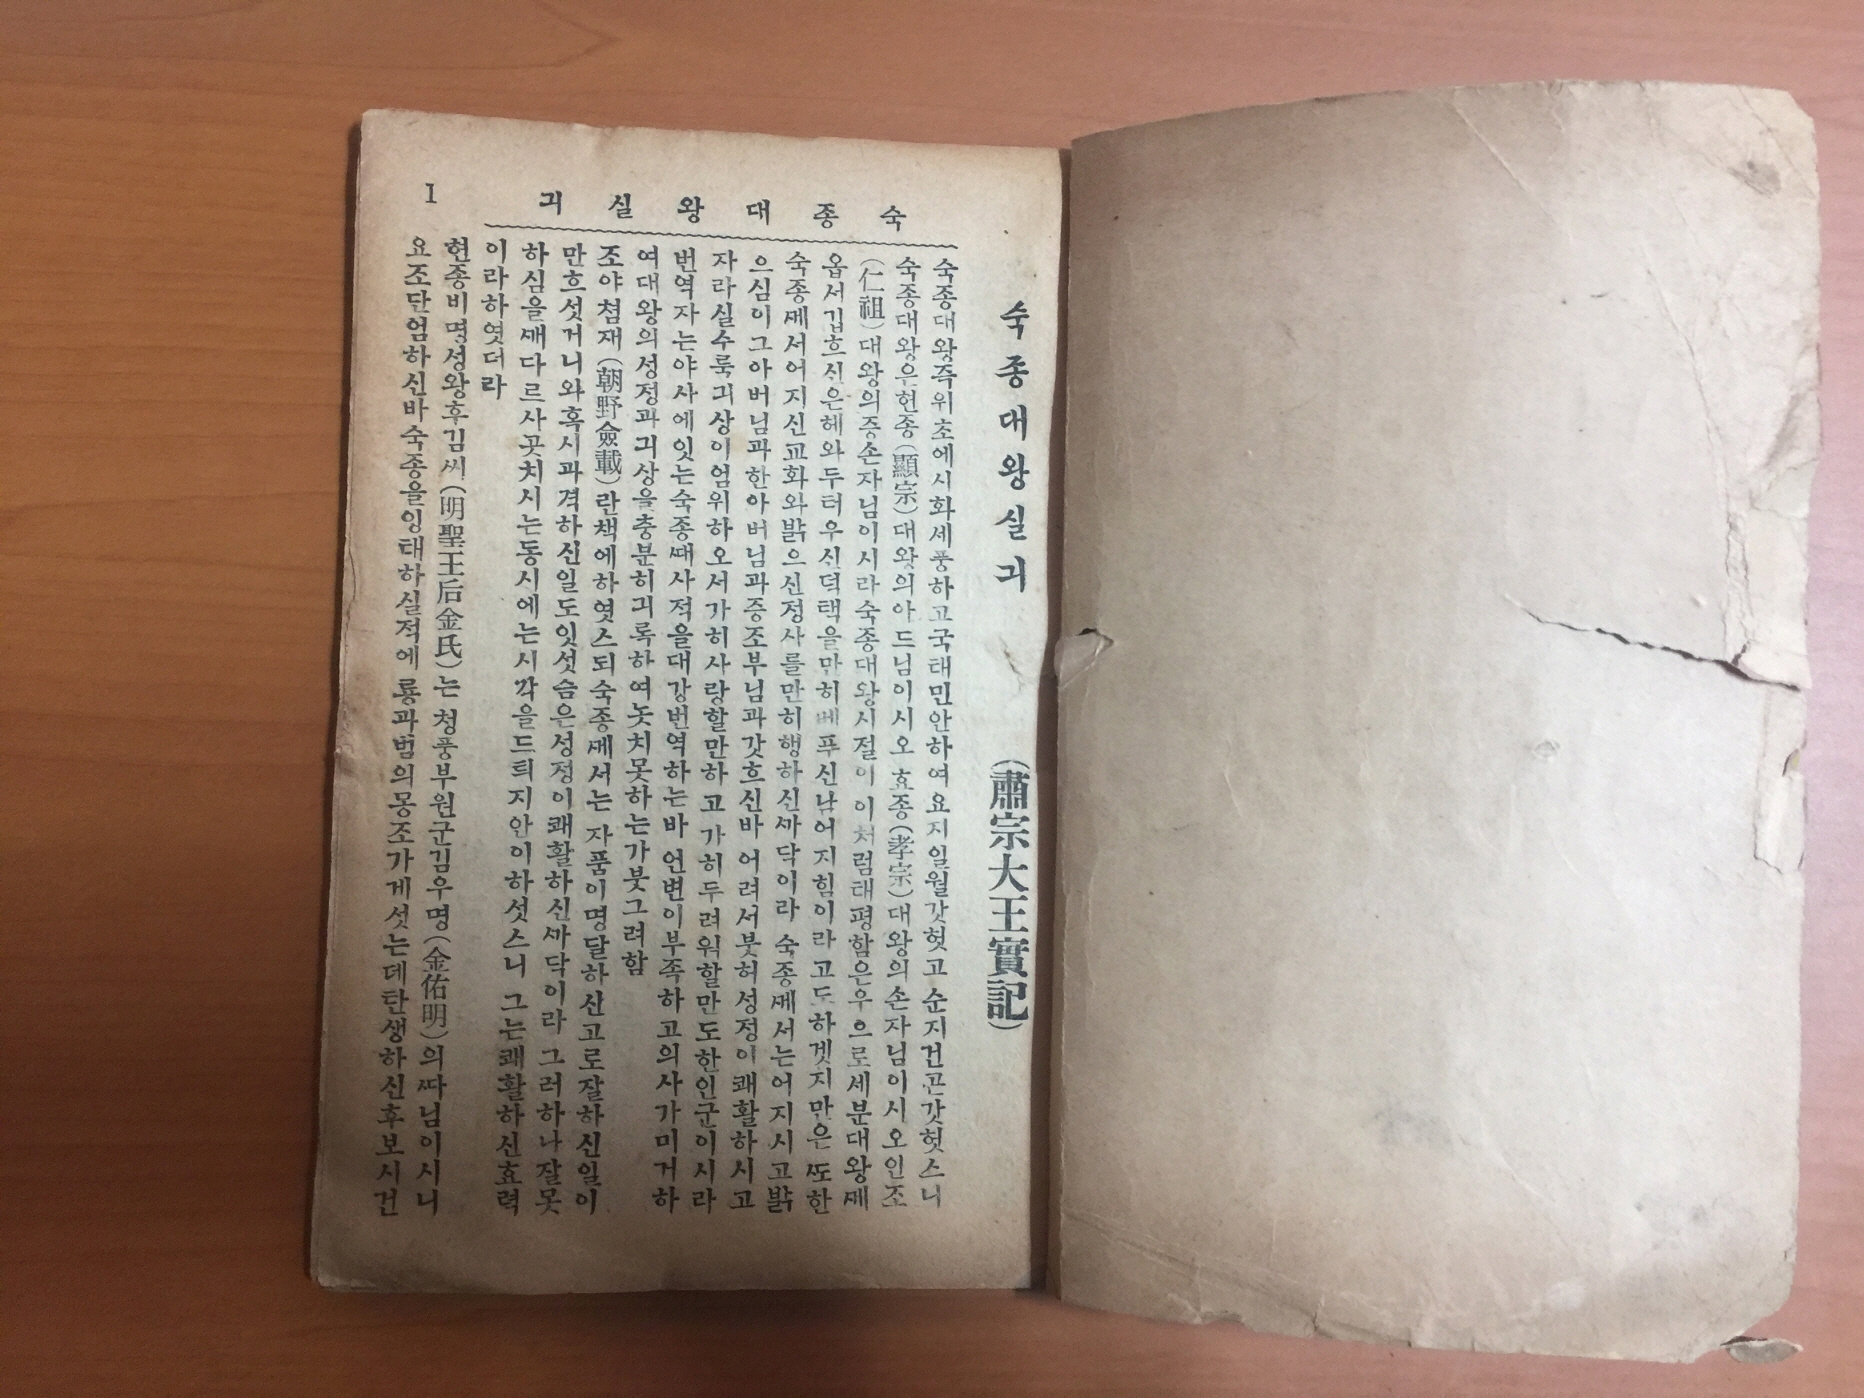 숙종대왕실긔
1
숙종대왕실긔
(肅宗大王實記)
숙종대왕즉위초에시화세풍하고국태민안하여요지일월갓헛고 순지건곤갓헛스니
숙종대왕은현종(顯宗)대왕의아드님이시오 효종(孝宗)대왕의손자님이시오인조
(仁祖)대왕의증손자님이시라숙종대왕시절이 이처럼태평함은우으로세분대왕ᄭᅦ
옵서깁흐신은혜와두터우신덕택을만히베푸신남어지힘이라고도하겟지만은ᄯᅩ한
숙종ᄭᅦ서어지신교화와밝으신정사를만히행하신ᄭᅡ닭이라 숙종ᄭᅦ서는어지시고밝
으심이그아버님과한아버님과증조부님과갓흐신바 어려서붓허성정이쾌활하시고
자라실수록긔상이엄위하오서가히사랑할만하고 가히두려워할만도한인군이시라
번역자는야사에잇는숙종ᄯᅢ사적을대강번역하는바 언변이부족하고의사가미거하
여대왕의성정과긔상을충분히긔록하여놋치못하는가붓그려함
조야첨재(朝野僉載)란책에하엿스되숙종ᄭᅦ서는 자품이명달하신고로잘하신일이
만흐섯거니와혹시과격하신일도잇섯슴은성정이쾌활하신ᄭᅡ닭이라 그러하나잘못
하심을ᄭᅢ다르사곳치시는동시에는시각을드틔지안이하섯스니 그는쾌활하신효력
이라하엿더라
현종비명성왕후김씨(明聖王后金氏)는 청풍부원군김우명(金佑明)의ᄯᅡ님이시니
요조단엄하신바숙종을잉태하실적에 룡과범의몽조가게섯는데탄생하신후보시건